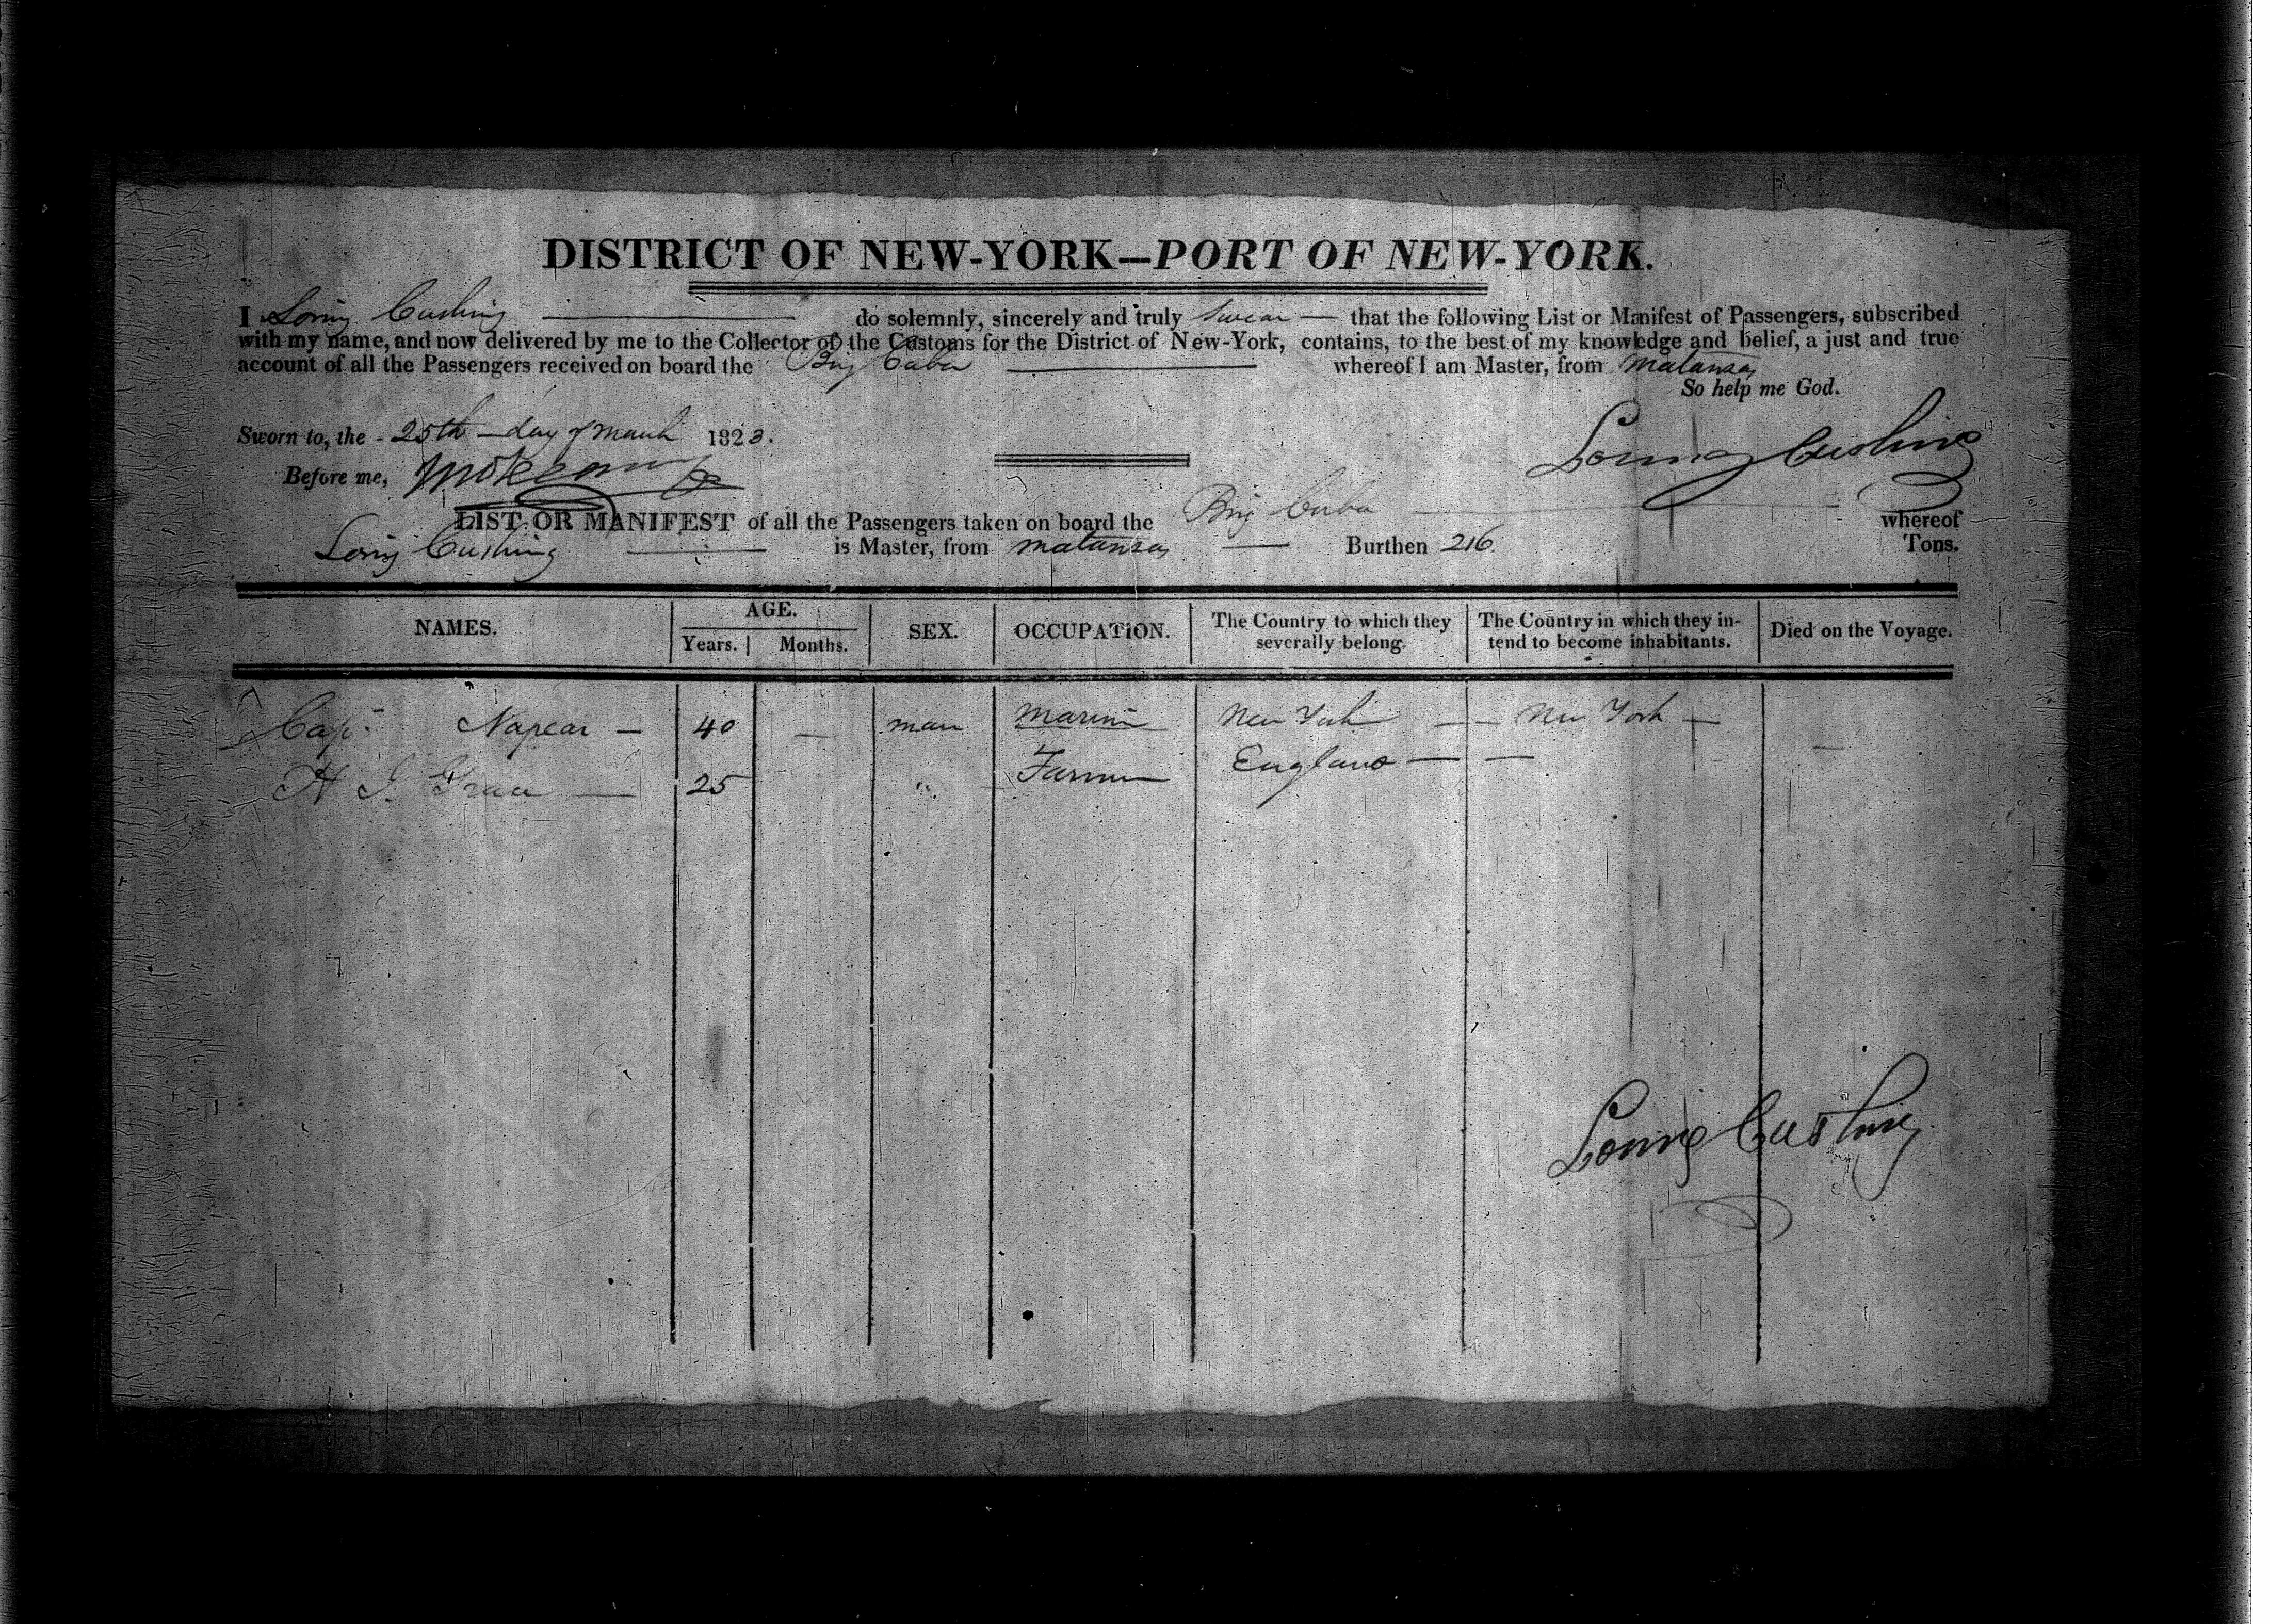 DISTRICT OF NEW-YORK—PORT OF NEW-YORK.
I Loring Cushing do solemnly, sincerely and truly swear — that the following List or Manifest of Passengers, subscribed
with my name, and now delivered by me to the Collector of the Customs for the District of New-York, contains, to the best of my knowledge and belief, a just and true
account of all the Passengers received on board the Brig Cuba whereof I am Master, from Matanzas
So help me God.
Sworn to, the 25th day of March 1823.
Loring Cushing
Before me,
LIST OR MANIFEST of all the Passengers taken on board the Brig Cuba whereof
Loring Cushing is Master, from Matanzas — Burthen 216 Tons.
NAMES. AGE. SEX. OCCUPATION. The Country to which they severally belong. The Country in which they intend to become inhabitants. Died on the Voyage.
Years. Months.
Cap. Napear — 40 — man Marine New York — — New York —
H 25 " Farmer England — —
Loring Cushing